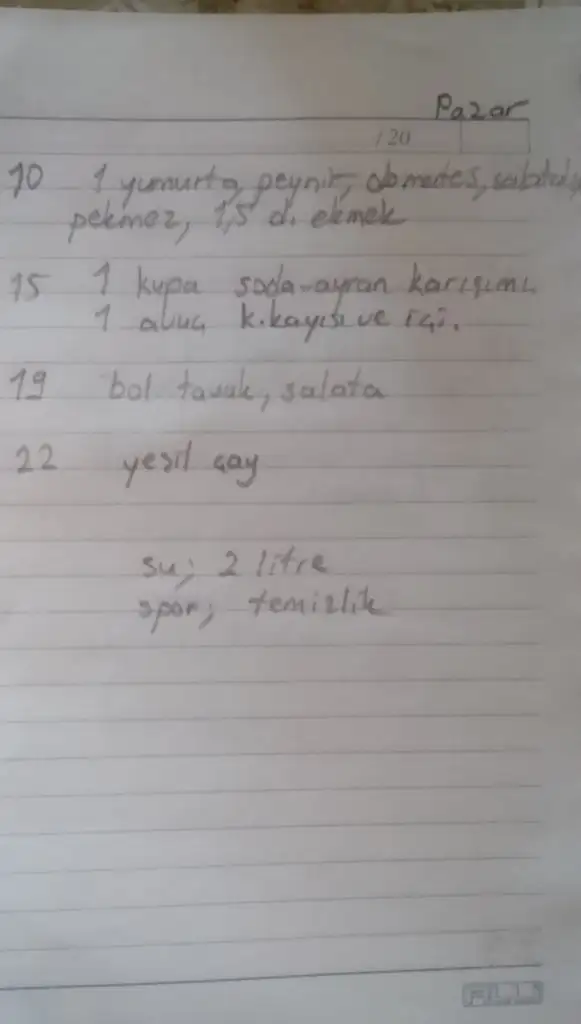 Pazar
/ 20
10 1 yumurta, peynir, domates,
pekmez, 1,5 d. ekmek
15 1 kupa soda-ayran karışımı
1 avuç k.kayısı ve içi.
19 bol tavuk, salata
22 yeşil çay
su; 2 litre
spor; temizlik